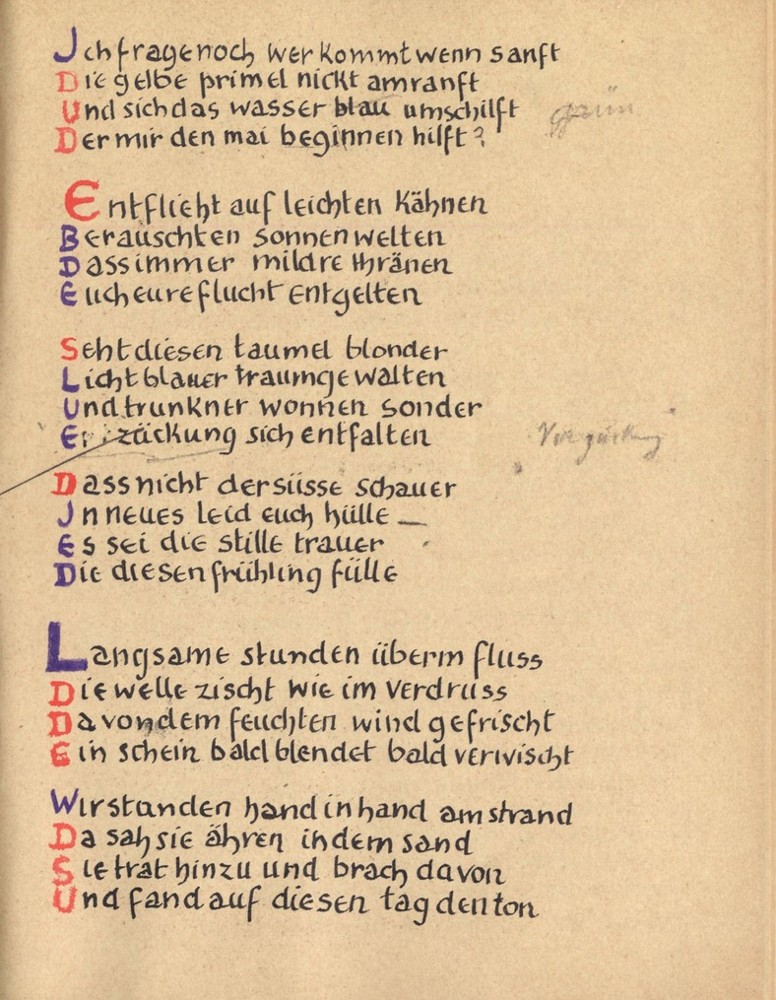 Ich frage noch wer kommt wenn sanft
Die gelbe primel nickt am ranft
Und sich das wasser blau umschilft grün
Der mir den mai beginnen hilft?
Entflieht auf leichten kähnen
Berauschten sonnenwelten
Dass immer mildre thränen
Euch eure flucht entgelten
Seht diesen taumel blonder
Lichtblauer traumgewalten
Und trunkner wonnen sonder
Verzückung sich entfalten
Dass nicht der süsse schauer
In neues leid euch hülle —
Es sei die stille trauer
Die diesen frühling fülle
Langsame stunden überm fluss
Die welle zischt wie im verdruss
Da von dem feuchten wind gefrischt
Ein schein bald blendet bald verwischt
Wir standen hand in hand am strand
Da sah sie ähren in dem sand
Sie trat hinzu und brach davon
Und fand auf diesen tag den ton